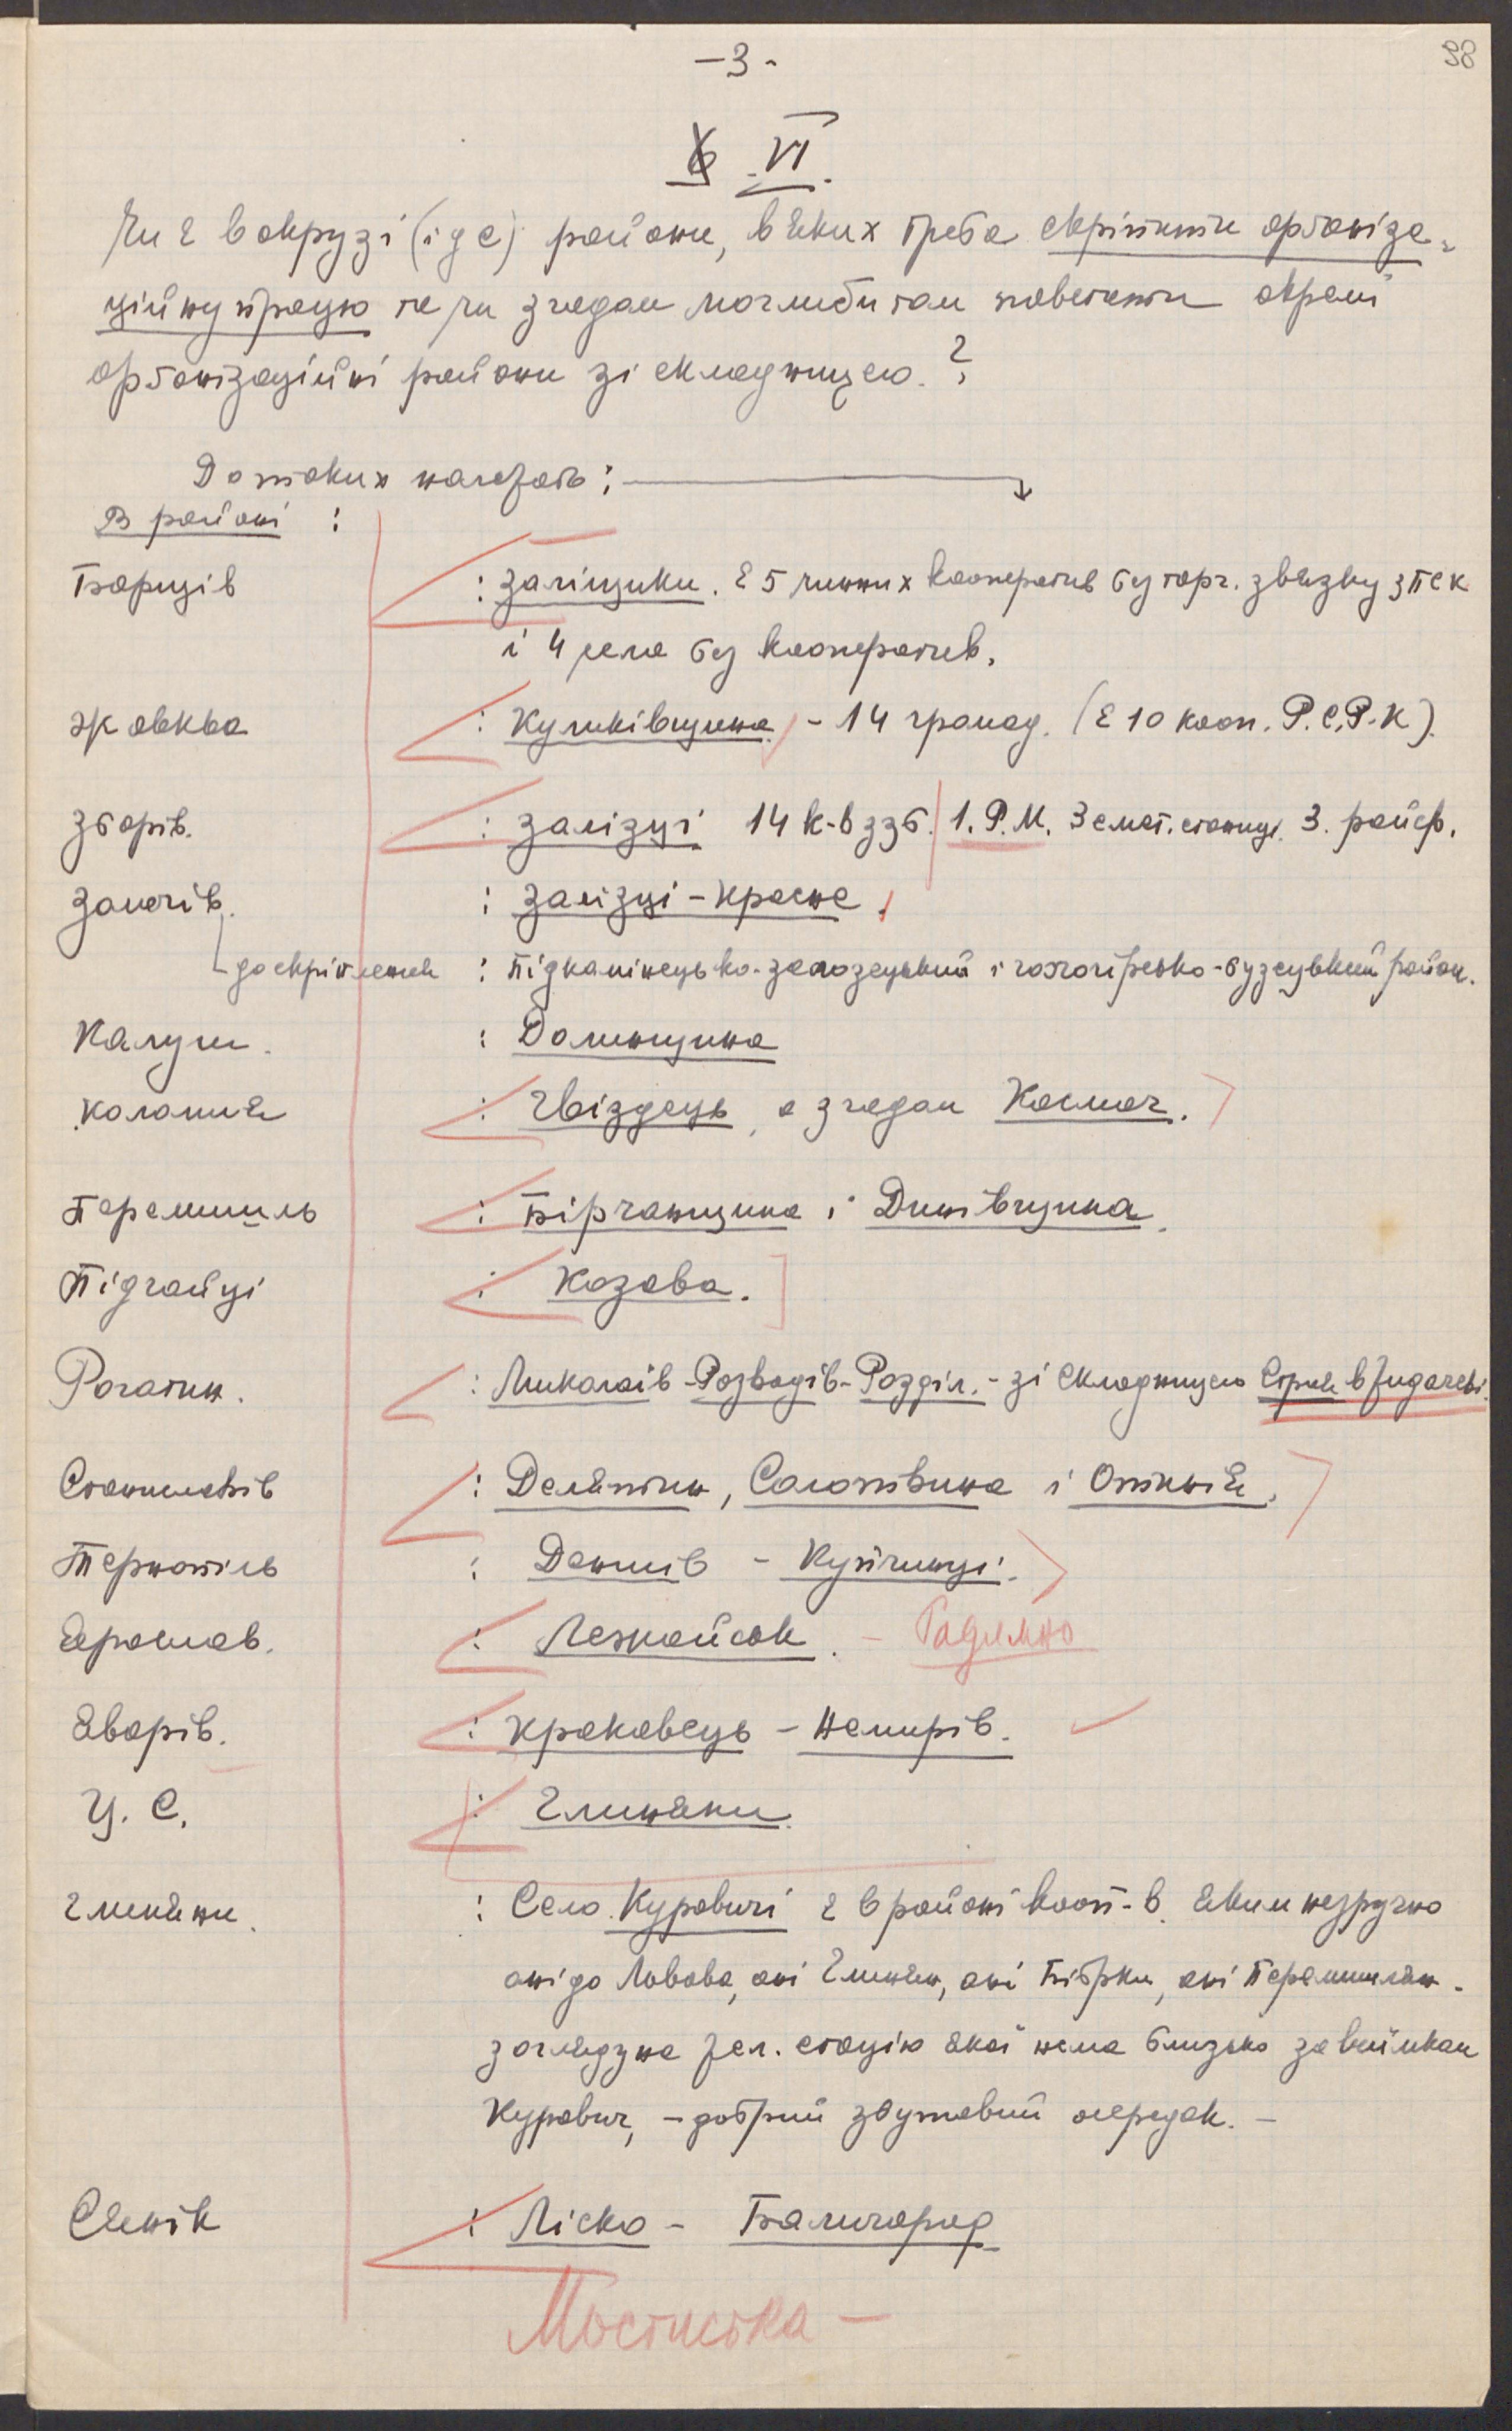 98
-3-
VI.
Чи є в окрузі (і де) райони, в яких треба скріпити організа-
ційну працю та чи згодом моглиби там повстати окремі
організаційні райони зі складницею.?
До таких належать:
В районі :
Борщів : Заліщики. є 5 чинних кооператив без торг. звязку з ПСК
і 4 села без кооператив.
Жовква : Куликівщина, - 14 громад. (є 10 кооп. Р.С.Р.К).
Зборів. : Залізці 14 к-в з зб. 1. Р.М. 3 смет. станиц. 3. райф.
Золочів. : Залізці - Красне.
до скріплення : Підкамінецько-залозецький і гологірсько-бузецький район.
Калуш. : Долинщина
Коломия : Гвіздець, а згодом Космач.
Перемишль : Бірчанщина і Динівщина.
Підгайці : Козова.
Рогатин. : Миколаїв - Розвадів - Розділ. - зі складницею Стрия в Жидачеві.
Станиславів : Делятин, Солотвина і Отинія.
Тернопіль : Денисів - Купчинці.
Ярослав. : Лежайськ. - Радимно
Яворів. : Краковець - Немирів.
Ц. С. : Глиняни.
Глиняни. : Село Куровичі є в районі кооп-в. яким незручно
ані до Львова, ані Глинян, ані Бібрки, ані Перемишлян.
з огляду на жел. стацію якої нема близько за виїмком
Курович, - добрий збутовий осередок. -
Сянік : Ліско - Балигород
Мостиска -